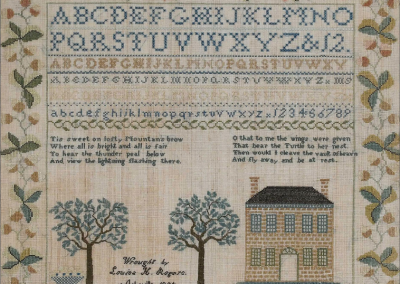 ABCDEFGHIJKLMNO
PQRSTUVWXYZ&12.
ABCDEFGHIJKLMNOPQRSTUVWXYZ
abcdefghijklmnopqrstuvwxyz.123456789
Tis sweet on lofty Mountain's brow
Where all is bright and all is fair
To hear the thunder peal below
And view the lightning flashing there.
O that to me the wings were given
That bear the Turtle to her nest.
Then would I cleave the vault of heaven
And fly away, and be at rest.
Wrought by
Louisa H.